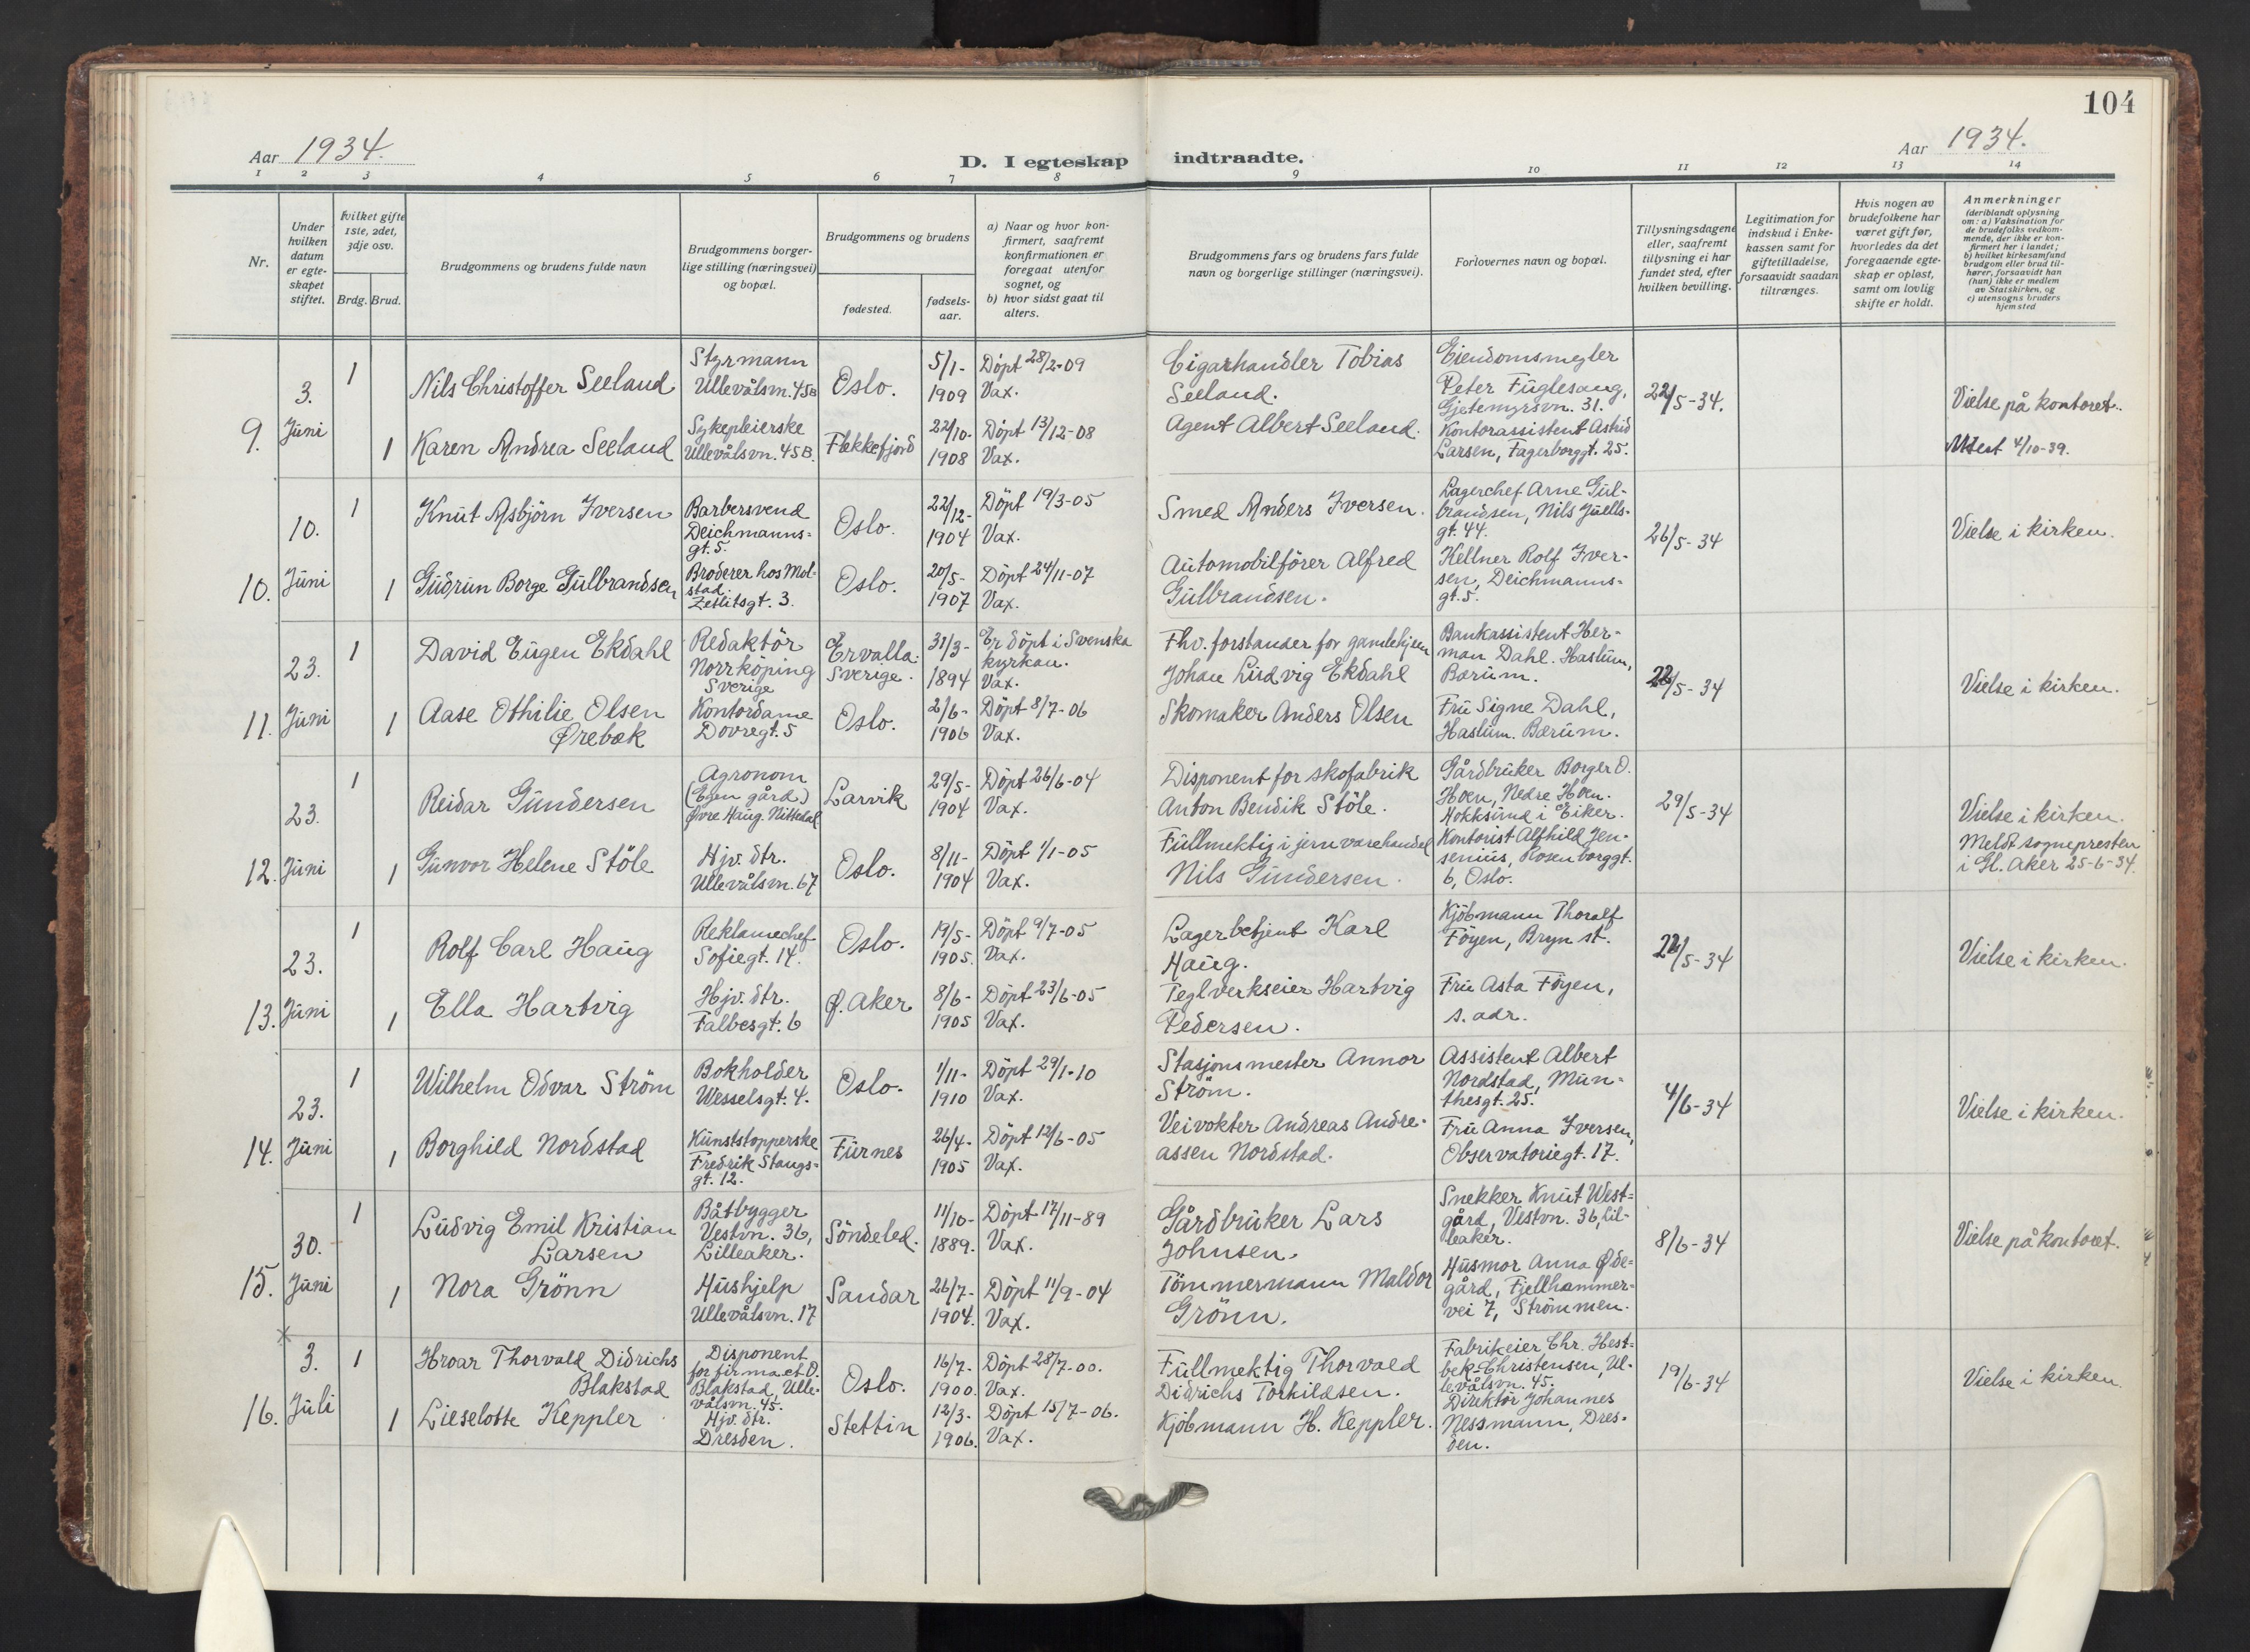 104
Aar 1934.
D. I egteskap indtraadte.
Aar 1934.
1 2 3 4 5 6 7 8 9 10 11 12 13 14
Nr.
Under
hvilken
datum
er egte-
skapet
stiftet.
Hvilket gifte
1ste, 2det,
3dje osv.
Brdg. Brud.
Brudgommens og brudens fulde navn
Brudgommens borger-
lige stilling (næringsvei)
og bopæl.
Brudgommens og brudens
fødested.
fødsels-
aar.
a) Naar og hvor kon-
firmert, saafremt
konfirmationen er
foregaat utenfor
sognet, og
b) hvor sidst gaat til
alters.
Brudgommens fars og brudens fars fulde
navn og borgerlige stillinger (næringsvei).
Forlovernes navn og bopæl.
Tillysningsdagene
eller, saafremt
tillysning ei har
fundet sted, efter
hvilken bevilling.
Legitimation for
indskud i Enke-
kassen samt for
giftetilladelse,
forsaavidt saadan
tiltrænges.
Hvis nogen av
brudefolkene har
været gift før,
hvorledes da det
foregaaende egte-
skap er opløst,
samt om lovlig
skifte er holdt.
Anmerkninger
(deriblandt oplysning
om: a) Vaksination for
de brudefolks vedkom-
mende, der ikke er kon-
firmert her i landet;
b) hvilket kirkesamfund
brudgom eller brud til-
hører, forsaavidt han
(hun) ikke er medlem
av Statskirken, og
c) utensogns bruders
hjemsted
9.
3.
Juni
1
Nils Christoffer Seeland
Styrmann
Ullevålsvn. 45B
Oslo.
5/1-
1909
Döpt 28/2-09
Vax.
Cigarhandler Tobias
Seeland.
Eiendomsmegler
Peter Fuglesang,
Gjetemyrsvn. 31.
22/5-34.
Vielse på kontoret.
1
Karen Andrea Seeland
Sykepleierske
Ullevålsvn. 45B.
Flekkefjord
22/10-
1908
Döpt 13/12-08
Vax.
Agent Albert Seeland.
Kontorassistent Astrid
Larsen, Fagerborggt. 25.
Attest 4/10-39.
10.
10.
Juni
1
Knut Asbjörn Iversen
Barbersvend
Deichmanns-
gt. 5.
Oslo.
22/12-
1904
Döpt 19/3-05
Vax.
Smed Anders Iversen.
Lagerchef Arne Gul-
brandsen, Nils Juells-
gt. 44.
26/5-34
Vielse i kirken.
1
Gudrun Borge Gulbrandsen
Broderer hos Mol-
stad.
Zetlitsgt. 3.
Oslo.
20/5-
1907
Döpt 24/11-07
Vax.
Automobilförer Alfred
Gulbrandsen.
Kellner Rolf Iver-
sen, Deichmanns-
gt. 5.
11.
23.
Juni
1
David Eugen Ekdahl
Redaktör
Norrköping
Sverige
Ervalla.
Sverige.
31/3-
1894
Er döpt i Svenska
kyrkan.
Vax.
Fhv. forstander for gamlehjem
Johan Ludvig Ekdahl
Bankassistent Her-
man Dahl. Haslum,
Bærum.
22/5-34
Vielse i kirken.
1
Aase Othilie Olsen
Ørebæk
Kontordame
Dovregt. 5
Oslo.
2/6-
1906
Döpt 8/7-06
Vax.
Skomaker Anders Olsen
Fru Signe Dahl,
Haslum. Bærum.
12.
23.
Juni
1
Reidar Gundersen
Agronom
(Egen gård)
Øvre Haug. Nittedal
Larvik
29/5-
1904
Döpt 26/6-04
Vax.
Disponent for skofabrik
Anton Bendik Stöle.
Gårdbruker Borger O.
Hoen, Nedre Hoen.
Hokksund i Eiker.
29/5-34
Vielse i kirken.
1
Gunvor Helene Stöle
Hjv. dtr.
Ullevålsvn. 67
Oslo.
8/11-
1904
Döpt 1/1-05
Vax.
Fullmektig i jernvarehandel
Nils Gundersen.
Kontorist Alfhild Jen-
senius, Rosenborggt.
6, Oslo.
Meldt sognepresten
i Gl. Aker 25-6-34.
13.
23.
Juni
1
Rolf Carl Haug
Reklamechef
Sofiegt. 14.
Oslo.
19/5-
1905.
Döpt 9/7-05
Vax.
Lagerbetjent Karl
Haug.
Kjöbmann Thoralf
Föyen, Bryn st.
22/5-34
Vielse i kirken.
1
Ella Hartvig
Hjv. dtr.
Falbesgt. 6
Ø. Aker
8/6-
1905
Döpt 23/6-05
Vax.
Teglverkseier Hartvig
Pedersen.
Fru Asta Föyen,
s. adr.
14.
23.
Juni
1
Wilhelm Odvar Ström
Bokholder
Wesselsgt. 4.
Oslo.
1/11-
1910
Döpt 29/1-10
Vax.
Stasjonsmester Annor
Ström.
Assistent Albert
Nordstad, Mun-
thesgt. 25.
4/6-34
Vielse i kirken.
1
Borghild Nordstad
Kunststopperske
Fredrik Stangs-
gt. 12.
Furnes
26/4-
1905
Döpt 12/6-05
Vax.
Veivokter Andreas Andre-
assen Nordstad.
Fru Anna Iversen,
Observatoriegt. 17.
15.
30.
Juni
1
Ludvig Emil Kristian
Larsen
Båtbygger
Vestvn. 36,
Lilleaker.
Söndeled.
11/10-
1889.
Döpt 17/11-89
Vax.
Gårdbruker Lars
Johnsen.
Snekker Knut West-
gård, Vestvn. 36, Lil-
leaker.
8/6-34
Vielse på kontoret.
1
Nora Grönn
Hushjelp
Ullevålsvn. 17
Sandar
26/7-
1904.
Döpt 11/9-04
Vax.
Tömmermann Maldor
Grönn.
Husmor Anna Øde-
gård, Fjellhammer-
vei 7, Strömmen.
16.
3.
Juli
1
Hroar Thorvald Didrichs
Blakstad
Disponent
for firmaet O.
Blakstad, Ulle-
vålsvn. 45.
Oslo.
16/7-
1900.
Döpt 28/7-00.
Vax.
Fullmektig Thorvald
Didrichs Torkildsen.
Fabrikeier Chr. Hest-
bek-Christensen, Ul-
levålsvn. 45.
19/6-34
Vielse i kirken.
1
Lieselotte Keppler
Hjv. dtr.
Dresden.
Stettin
12/3-
1906.
Döpt 15/7-06.
Vax.
Kjöbmann H. Keppler.
Direktör Johannes
Nessmann, Dres-
den.